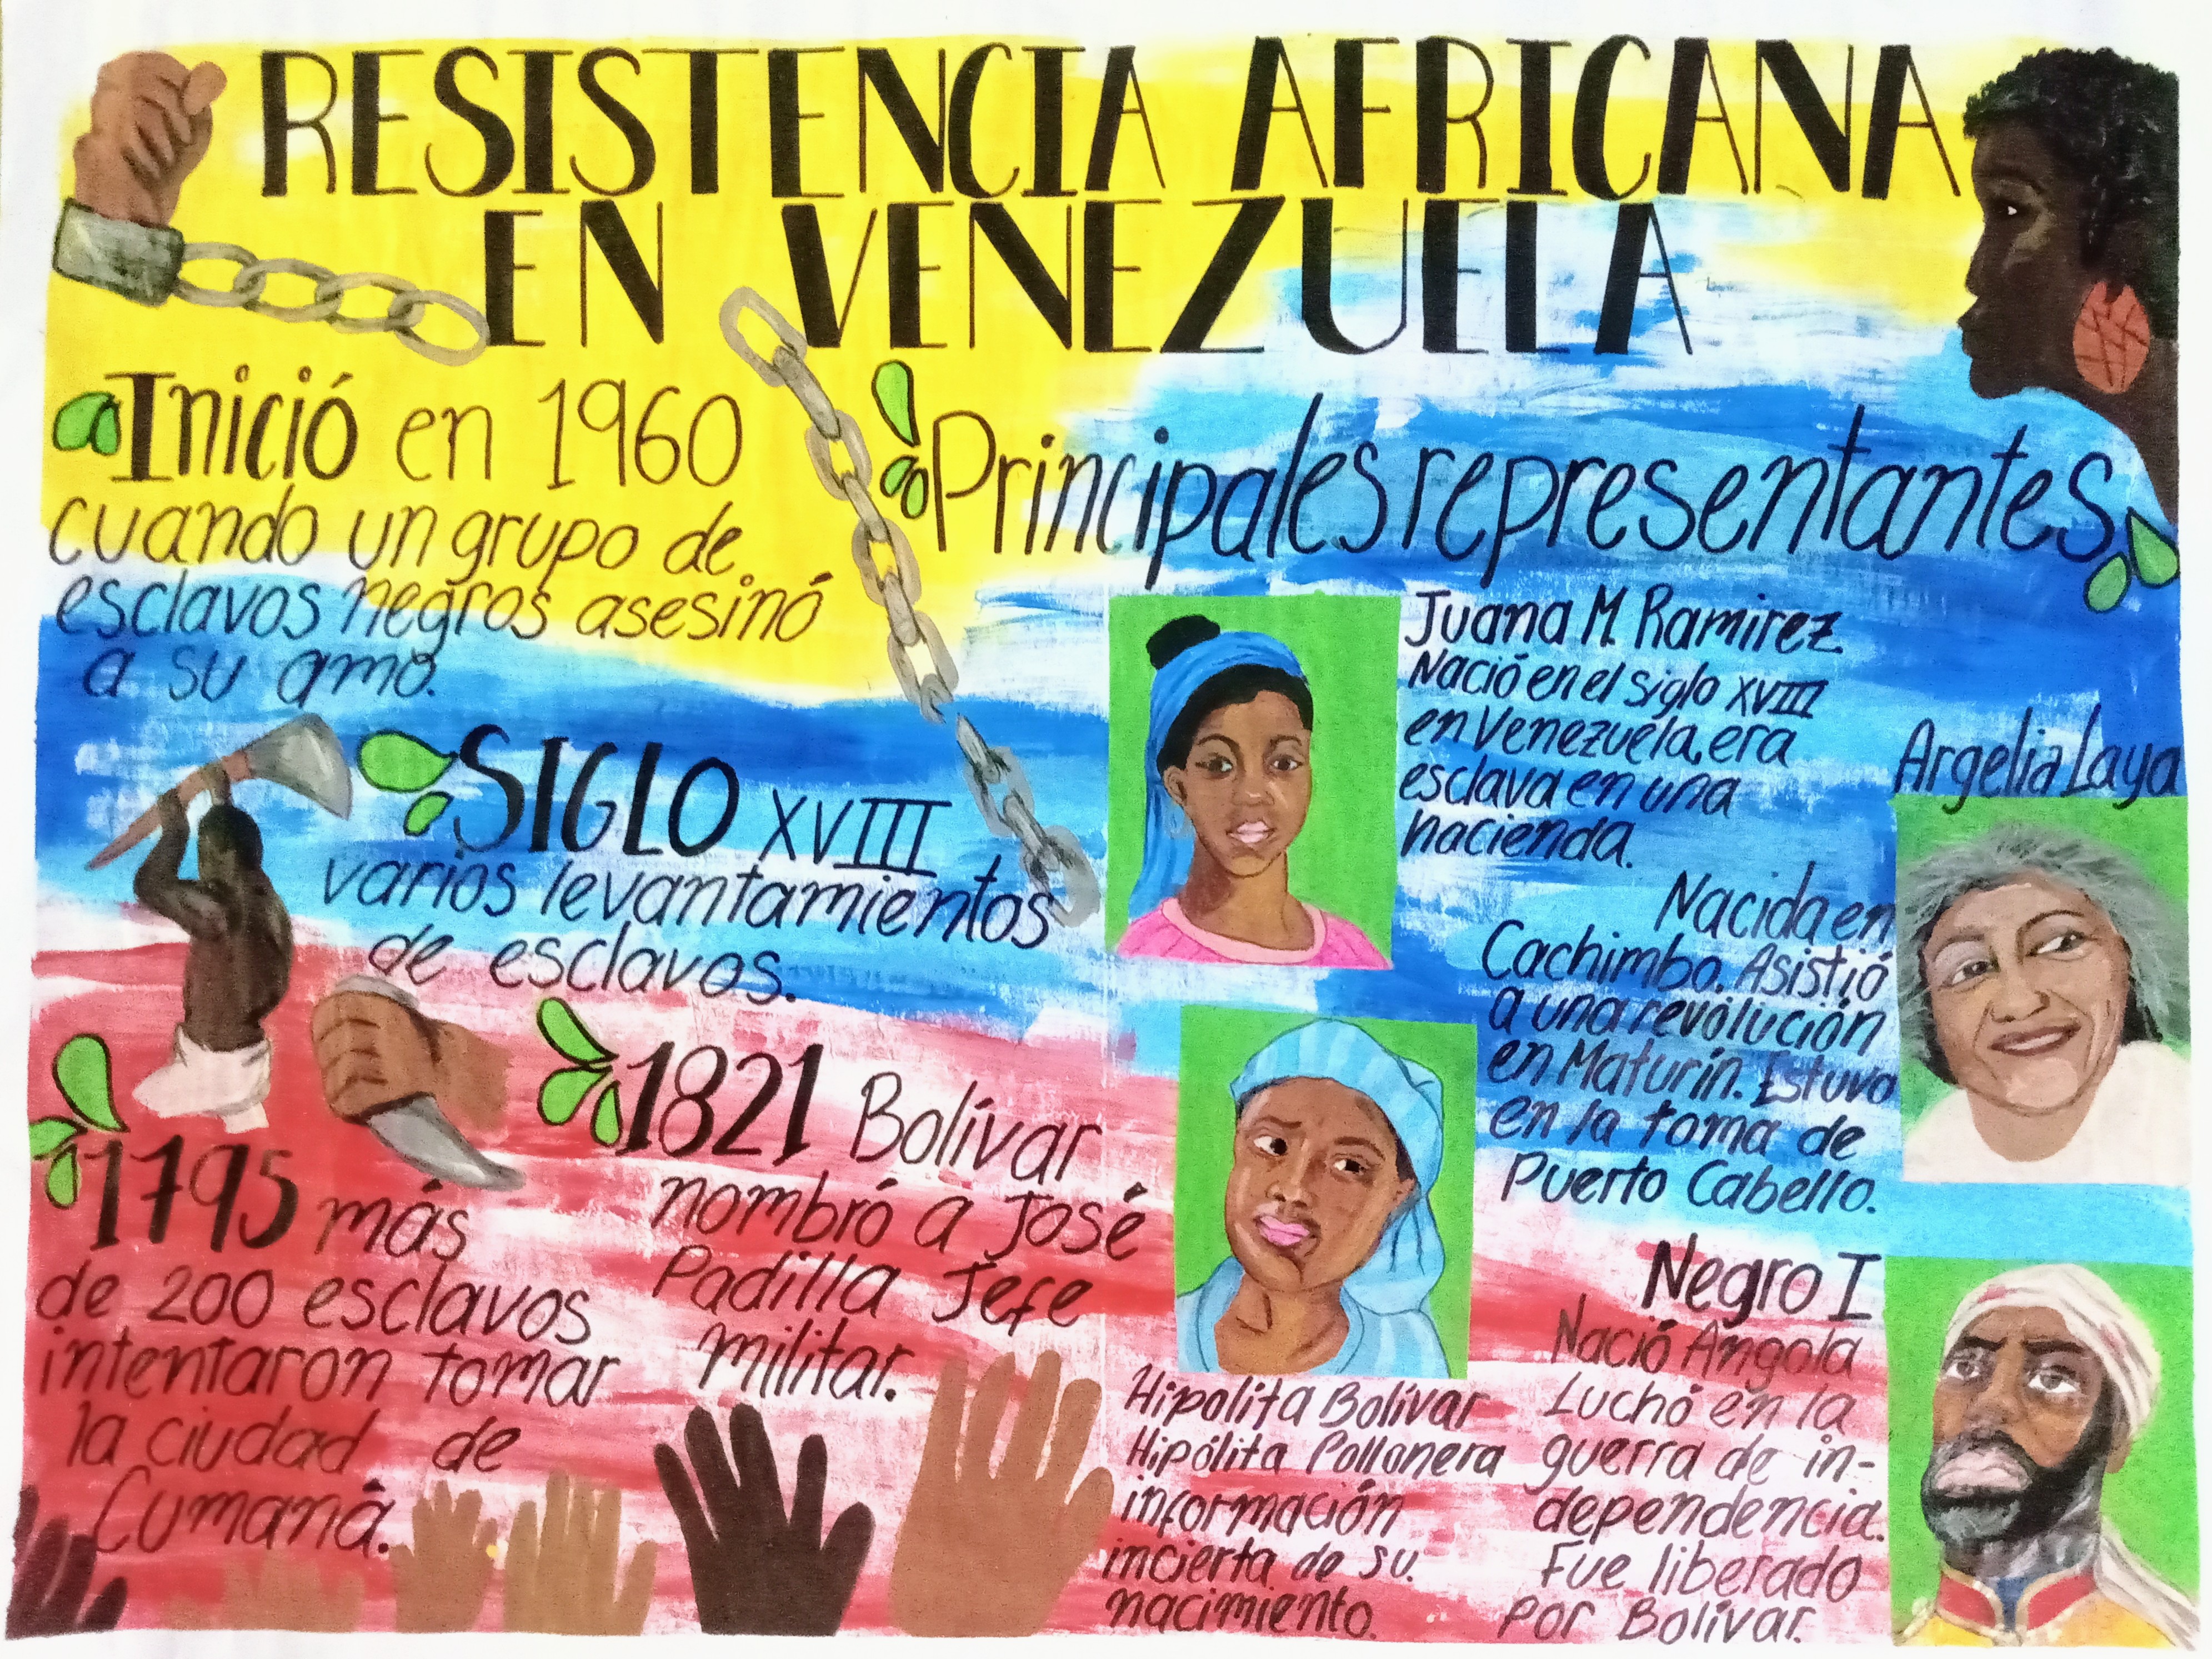 RESISTENCIA AFRICANA
EN VENEZUELA
Inició en 1960
cuando un grupo de
esclavos negros asesinó
a su amo.
SIGLO XVIII
varios levantamientos
de esclavos.
1795 más
de 200 esclavos
intentaron tomar
la ciudad de
Cumaná.
1821 Bolívar
nombró a José
Padilla Jefe
militar.
Principales representantes
Juana M. Ramirez
Nació en el siglo XVIII
en Venezuela, era
esclava en una
hacienda.
Argelia Laya
Nacida en
Cachimbo. Asistió
a una revolución
en Maturín. Estuvo
en la toma de
Puerto Cabello.
Hipolita Bolívar
Hipólita Pollonera
información
incierta de su
nacimiento.
Negro I
Nació Angola
Luchó en la
guerra de in-
dependencia.
Fue liberado
por Bolívar.